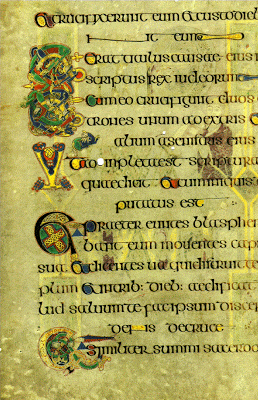 crucifixerunt eum et custodieb
it eum
Erat titulus causae eius
scriptus rex iudeorum
Et cum eo crucifigunt duos
latrones unum a dextris et
alium a sinistris eius
impletaest scriptura
quae dicit Et cum iniquis
putatus est
praetereuntes blasphem
bant eum mouentes capi
sua et dicentes ua qui distruit
plum et in trib: dieb: aedificat
saluum te fac ipsum discen
de cruce
Similiter summi sacerdo